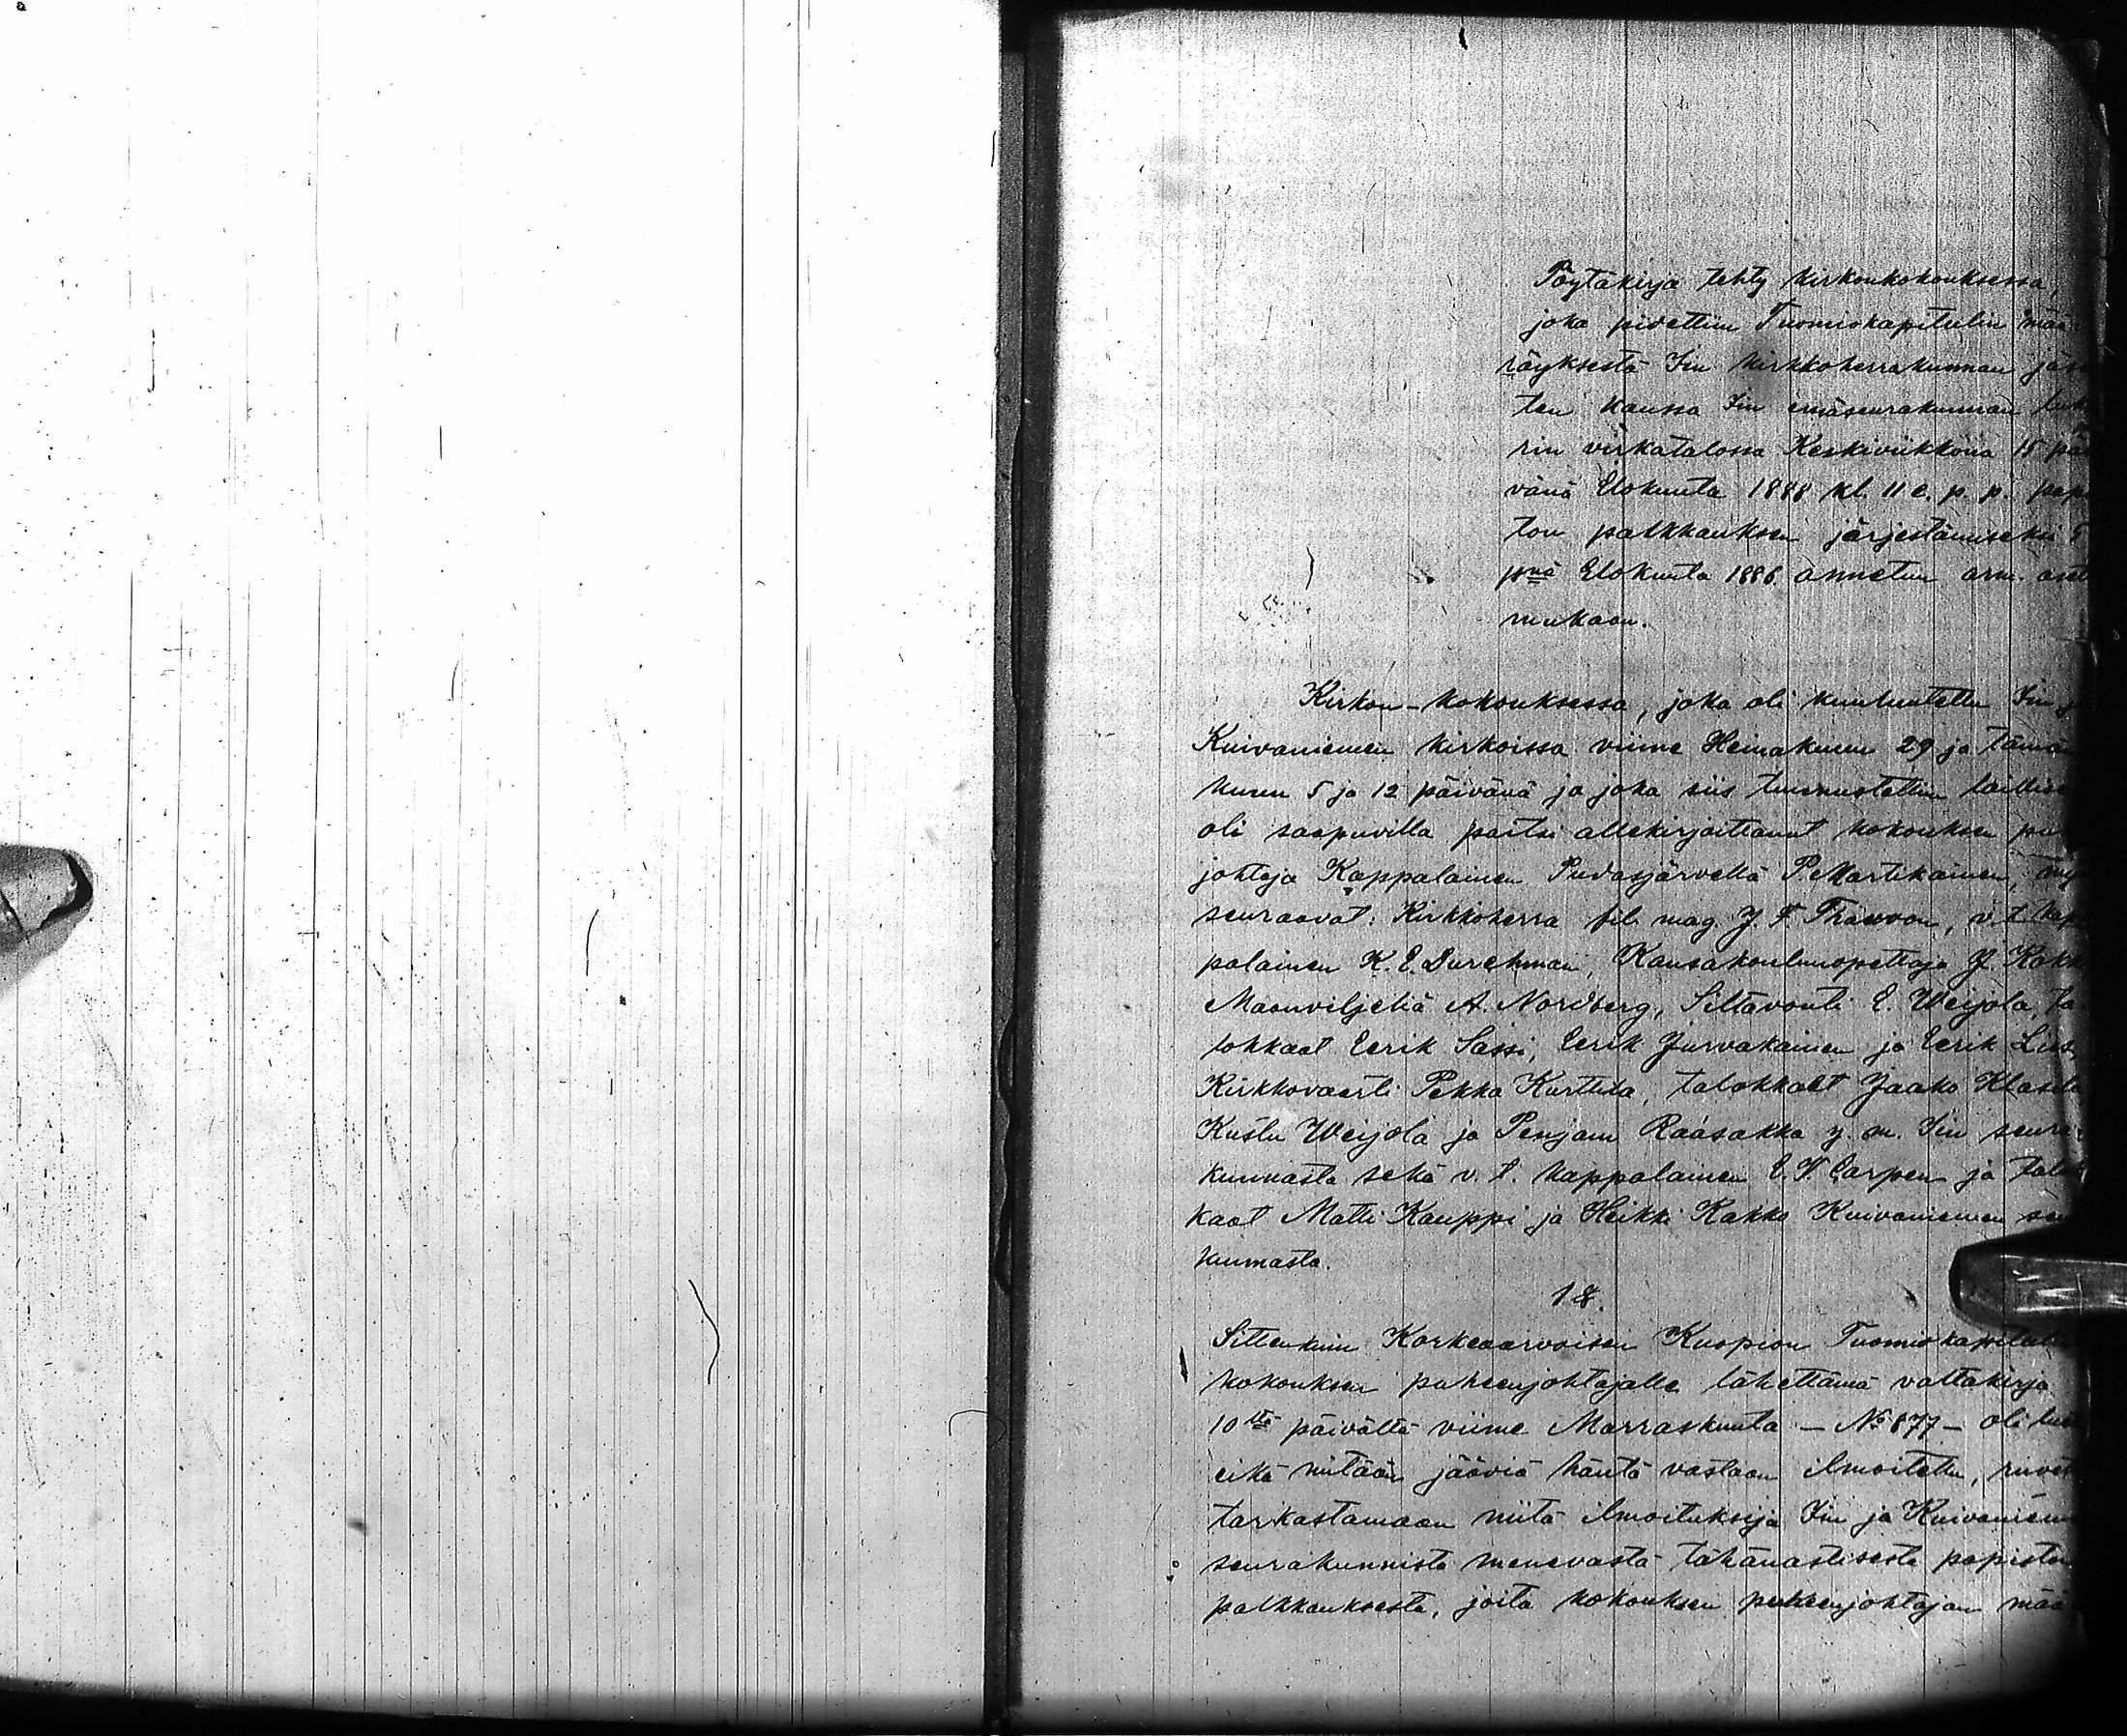 Pöytäkirja tehty kirkonkokouksessa,
joka pidettiin Tuomiokapitulin mää-
räyksestä Iin kirkkoherrakunnan jäs
ten kanssa Iin emäseurakunnan luk
rin virkatalossa Keskiviikkona 15 päi
vänä Elokuuta 1888 kl. 11 e. p. p. pap
ton palkkauksen järjestämiseksi
pnä Elokuuta 1886 annetun arm. aset
mukaan.
Kirkon-kokouksessa, joka oli kuulutettu Iin j
Kuivaniemen kirkoissa viime Heinäkuun 29 ja tämän
kuun 5 ja 12 päivänä ja joka siis tunnustettiin laillise
oli saapuvilla paitsi allekirjoittanut kokouksen pu
johtaja Kappalainen Pudasjärveltä P. Martikainen, my
seuraavat: Kirkkoherra fil. mag. J. F. Thauvon, v. t. kap
palainen K. E. Durchman, Kansakoulunopettaja J. Kokk
Maanviljeliä A. Nordberg, Siltavouti E. Weijola, ta-
lokkaat Eerik Sassi, Eerik Jurvakainen ja Eerik Liis
Kirkkovaarti Pekka Kurttila, talokkaat Jaako Klasila
Kustu Weijola ja Penjam Raasakka y. m. Iin seura-
kunnasta sekä v. t. kappalainen E. V. Carpen ja talok
kaat Matti Kauppi ja Heikki Kakko Kuivaniemen seu
kunnasta.
1 §.
Sittenkuin Korkeaarvoisen Kuopion Tuomiokapituli
kokouksen puheenjohtajalle lähettämä valtakirja
10ltä päivältä viime Marraskuuta – No 877 – oli lue
eikä mitään jääviä häntä vastaan ilmoitettu, ruvet
tarkastamaan niitä ilmoituksija Iin ja Kuivaniemen
seurakunnista menevästä tähänastisesta papiston
palkkauksesta, joita kokouksen puheenjohtajan mää